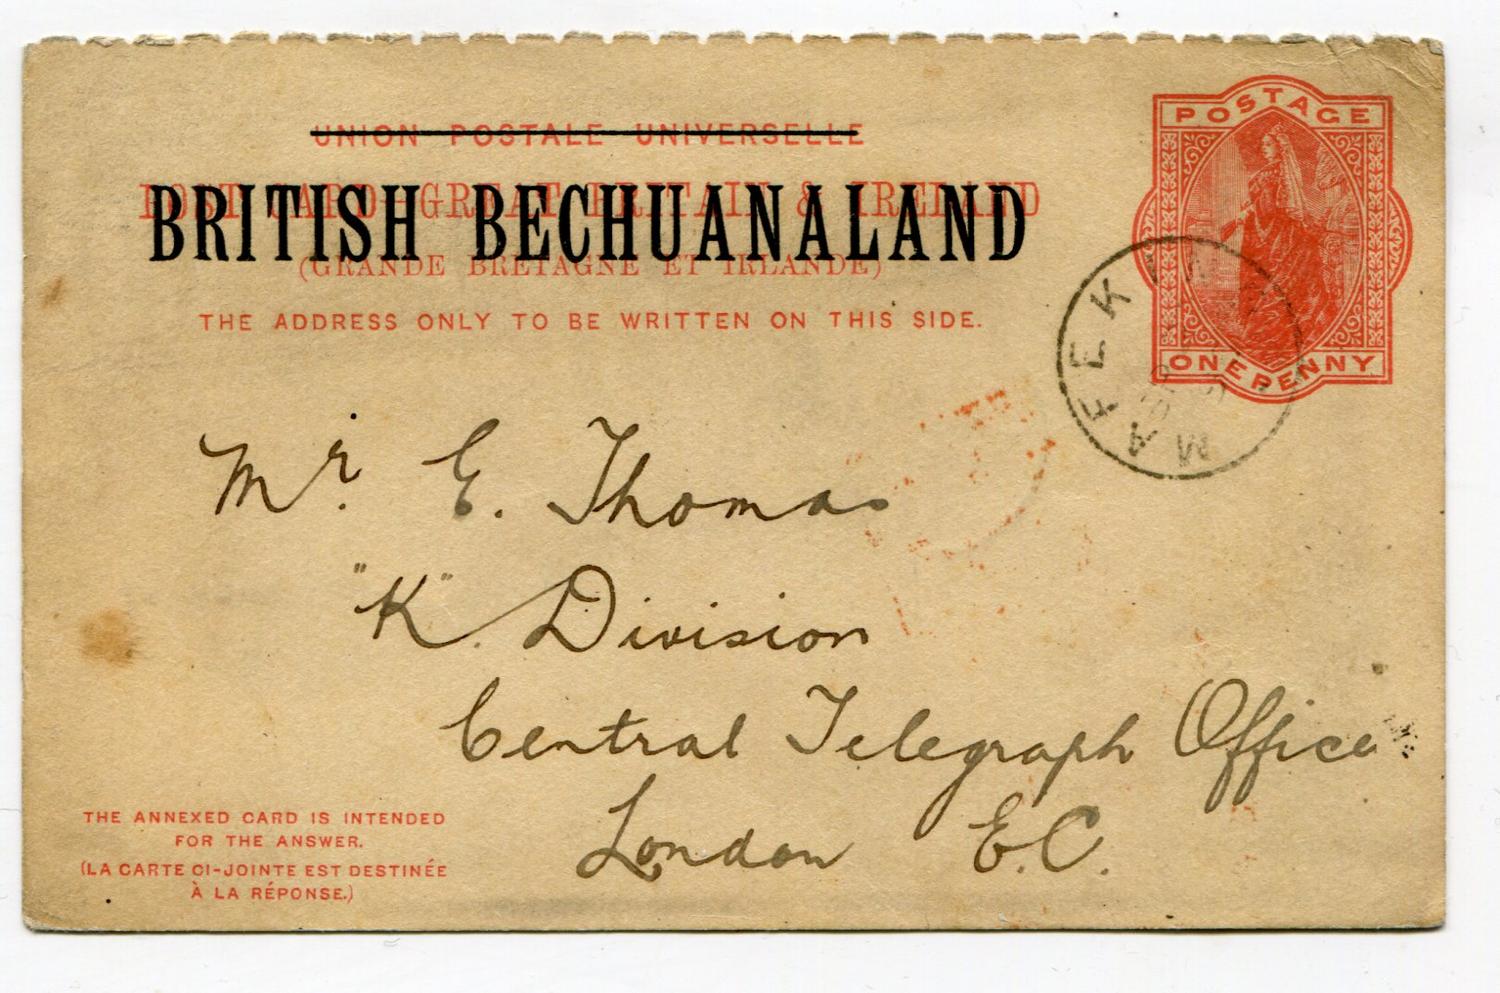 UNION POSTALE UNIVERSELLE
POST CARD – GREAT BRITAIN & IRELAND
BRITISH BECHUANALAND
(GRANDE BRETAGNE ET IRLANDE)
THE ADDRESS ONLY TO BE WRITTEN ON THIS SIDE.
POSTAGE
ONE PENNY
MAFEKING
Mr. E. Thomas
"K". Division
Central Telegraph Office
London E.C.
THE ANNEXED CARD IS INTENDED
FOR THE ANSWER.
(LA CARTE CI-JOINTE EST DESTINÉE
À LA RÉPONSE.)